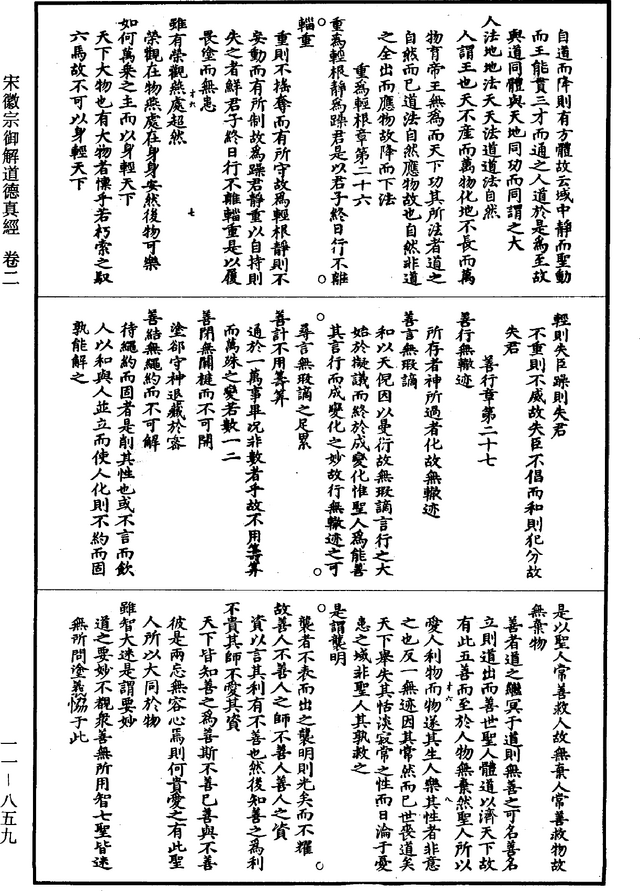 自道而降則有方體故云域中靜而聖動
而王能貫三才而通之人道於是為至故
與道同體與天地同功而同謂之大
人法地地法天天法道道法自然
人謂王也天不產而萬物化地不長而萬
物育帝王無為而天下功其所法者道之
自然而已道法自然應物故也自然非道
之全出而應物故降而下法
重為輕根章第二十六
重為輕根靜為躁君是以君子終日行不離
輜重
重則不搖奪而有所守故為輕根靜則不
妄動而有所制故為躁君靜重以自持則
失之者鮮君子終日行不離輜重是以履
畏塗而無患
雖有榮觀燕處超然
榮觀在物燕處在身身安然後物可樂
如何萬乘之主而以身輕天下
天下大物也有大物者懍乎若朽索之馭
六馬故不可以身輕天下
輕則失臣躁則失君
不重則不威故失臣不倡而和則犯分故
失君
善行章第二十七
善行無轍迹
所存者神所過者化故無轍迹
善言無瑕讁
和以天倪因以曼衍故無瑕讁言行之大
始於擬議而終於成變化惟聖人為能善
其言行而成變化之妙故行無轍迹之可
尋言無瑕讁之足累
善計不用籌筭
通於一萬事畢況非數者乎故不用籌筭
而萬殊之變若數一二
善閉無關楗而不可開
塗郤守神退藏於密
善結無繩約而不可解
待繩約而固者是削其性也或不言而飲
人以和與人並立而使人化則不約而固
孰能解之
是以聖人常善救人故無棄人常善救物故
無棄物
善者道之繼冥于道則無善之可名善名
立則道出而善世聖人體道以濟天下故
有此五善而至於人物無棄然聖人所以
愛人利物而物遂其生人樂其性者非意
之也反一無迹因其常然而已世喪道矣
天下舉失其恬淡寂常之性而日淪于憂
患之域非聖人其孰救之
是謂襲明
襲者不表而出之襲明則光矣而不耀
故善人不善人之師不善人善人之資
資以言其利有不善也然後知善之為利
不貴其師不愛其資
天下皆知善之為善斯不善已善與不善
彼是兩忘無容心焉則何貴愛之有此聖
人所以大同於物
雖智大迷是謂要妙
道之要妙不覩衆善無所用智七聖皆迷
無所問塗義協于此
十六
七
十六
八
宋徽宗御解道德真經 卷二
一一—八五九